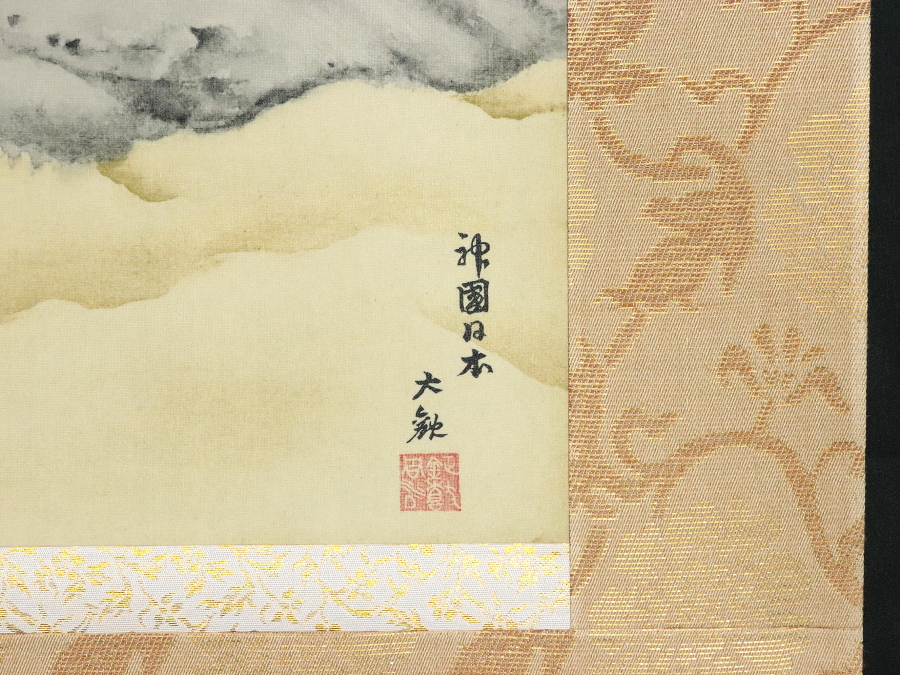 神國日本
大観